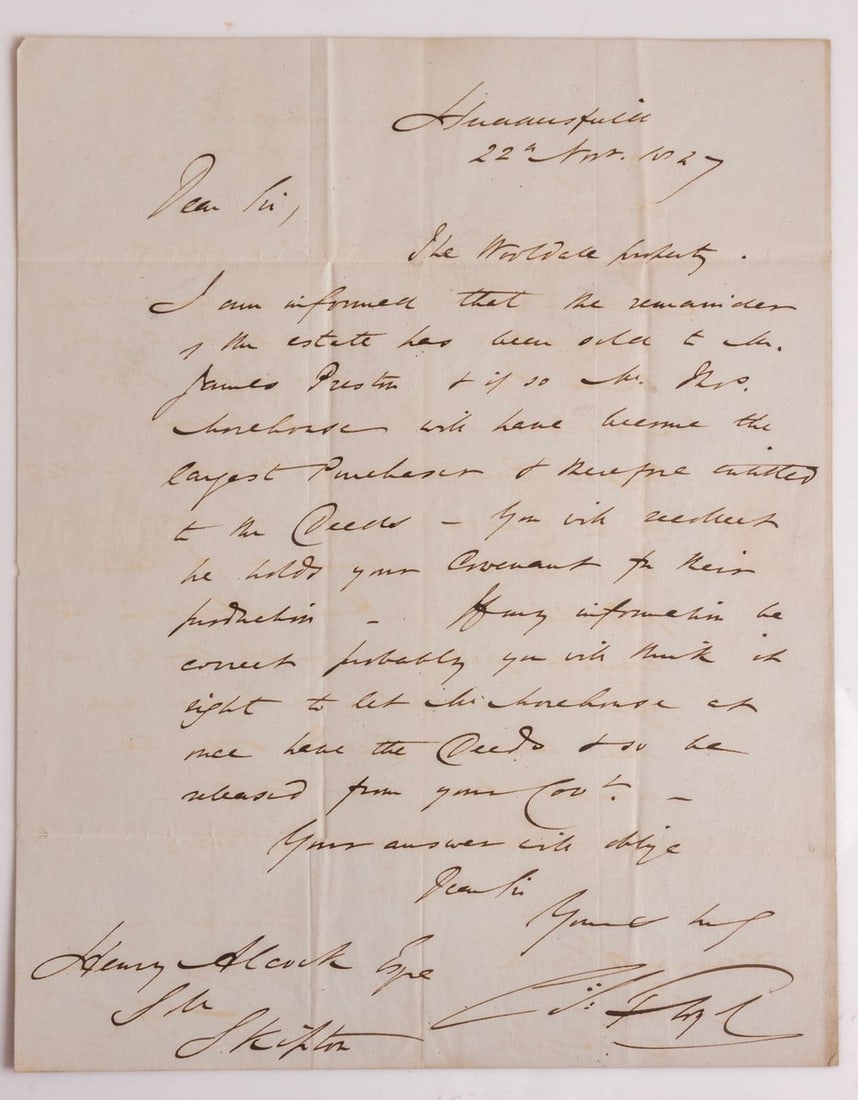 Huddersfield
22d Novr. 1827
Dear Sir,
The Wooldale property.
I am informed that the remainder
of the estate has been sold to Mr.
James Preston & if so Mr. Thos.
Morehouse will have become the
largest Purchaser & therefore entitled
to the Deeds – You will recollect
he holds your Covenant for their
production – If my information be
correct probably you will think it
right to let Mr Morehouse at
once have the Deeds & so be
released from your Covt. –
Your answer will oblige
Dear Sir
Yours truly
Henry Alcock Esqe
Skipton